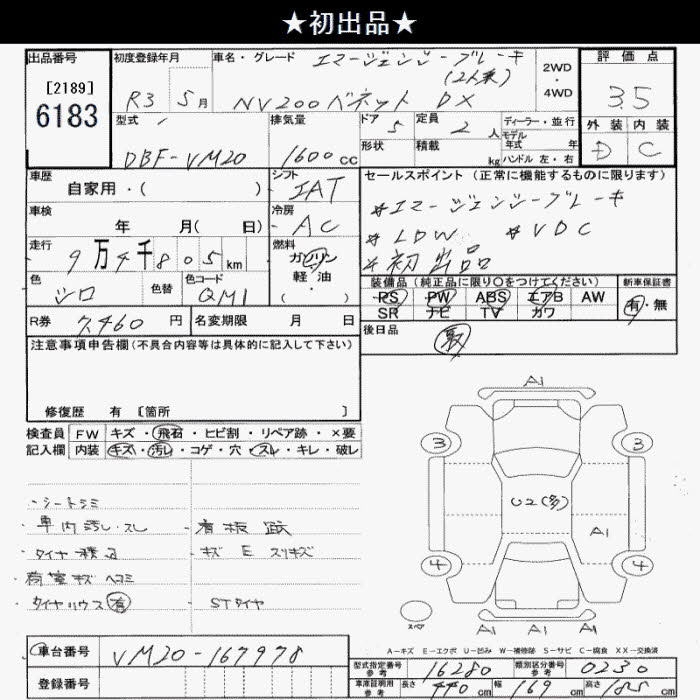 ★初出品★
出品番号
[2189]
6183
初度登録年月
R3 5月
車名・グレード エマージェンシーブレーキ
(2人乗)
NV200バネット DX
2WD
・
4WD
評価点
3.5
外装 内装
D C
型式
DBF-VM20
排気量
1600cc
ドア 5
形状
定員 2人
積載 kg
ディーラー・並行
モデル
年式 年
ハンドル 左・右
車歴
自家用・( )
シフト
IAT
車検
年 月( 日)
冷房
AC
走行
9万4千805km
燃料
ガソリン
軽・油
( )
色
シロ
色替
色コード
QM1
R券 7,460円
名変期限 月 日
セールスポイント(正常に機能するものに限ります)
*エマージェンシーブレーキ
*LDW *VDC
*初出品
装備品(純正品に限り○をつけてください)
PS PW ABS エアB AW
SR ナビ TV カワ
新車保証書
有・無
後日品
取
注意事項申告欄(不具合内容等は具体的に記入して下さい)
修復歴 有 [箇所 ]
検査員 FW キズ・飛石・ヒビ割・リペア跡・×要
記入欄 内装 キズ・汚レ・コゲ・穴・スレ・キレ・破レ
・シートシミ
・車内汚し・スレ ・看板跡
・タイヤ積込 ・キズ E スリキズ
・荷室キズ ヘコミ
・タイヤハウス有 STタイヤ
A1
3 3
U2(多)
A1
4 4
スペア
A1 A1 A1
A-キズ E-エクボ U-凹み W-補修跡 S-サビ C-腐食 XX-交換済
車台番号 VM20-167978
登録番号
型式指定番号
参考 16280
類別区分番号
参考 0230
車庫証明用
参考 長さ 440cm 幅 169cm 高さ cm